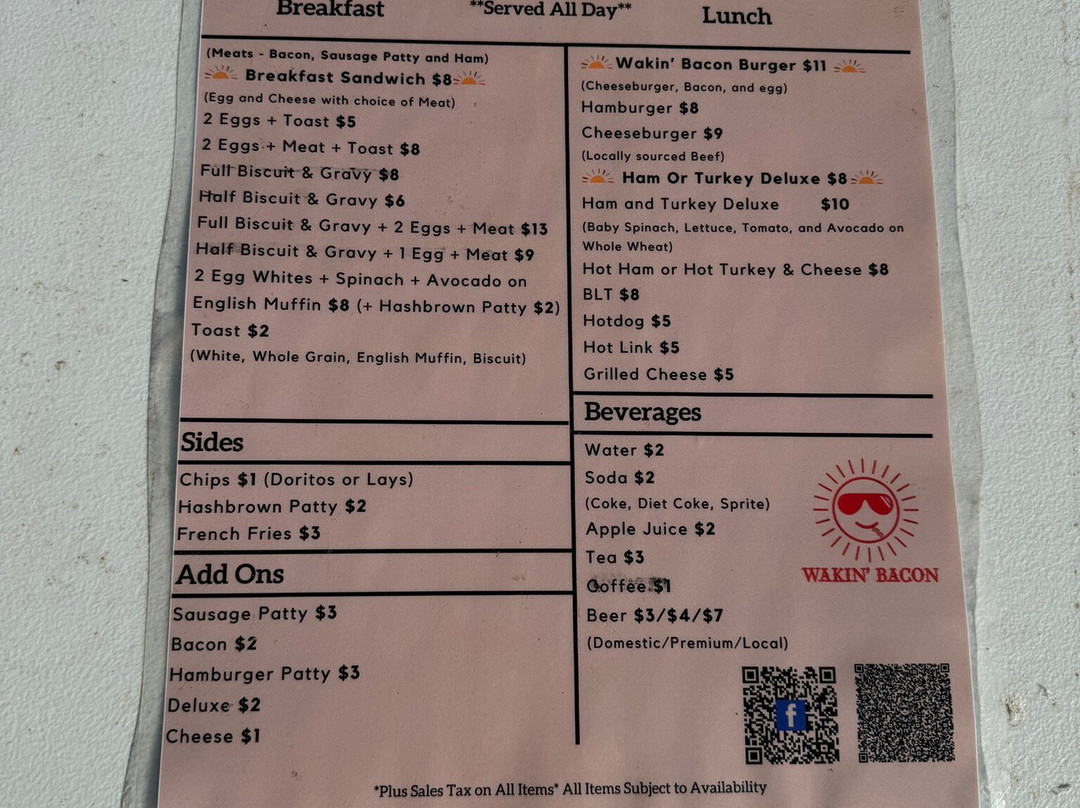 Breakfast
**Served All Day**
Lunch
(Meats - Bacon, Sausage Patty and Ham)
Breakfast Sandwich $8
(Egg and Cheese with choice of Meat)
2 Eggs + Toast $5
2 Eggs + Meat + Toast $8
Full Biscuit & Gravy $8
Half Biscuit & Gravy $6
Full Biscuit & Gravy + 2 Eggs + Meat $13
Half Biscuit & Gravy + 1 Egg + Meat $9
2 Egg Whites + Spinach + Avocado on
English Muffin $8 (+ Hashbrown Patty $2)
Toast $2
(White, Whole Grain, English Muffin, Biscuit)
Sides
Chips $1 (Doritos or Lays)
Hashbrown Patty $2
French Fries $3
Add Ons
Sausage Patty $3
Bacon $2
Hamburger Patty $3
Deluxe $2
Cheese $1
Wakin' Bacon Burger $11
(Cheeseburger, Bacon, and egg)
Hamburger $8
Cheeseburger $9
(Locally sourced Beef)
Ham Or Turkey Deluxe $8
Ham and Turkey Deluxe $10
(Baby Spinach, Lettuce, Tomato, and Avocado on
Whole Wheat)
Hot Ham or Hot Turkey & Cheese $8
BLT $8
Hotdog $5
Hot Link $5
Grilled Cheese $5
Beverages
Water $2
Soda $2
(Coke, Diet Coke, Sprite)
Apple Juice $2
Tea $3
Coffee $1
Beer $3/$4/$7
(Domestic/Premium/Local)
WAKIN' BACON
f
*Plus Sales Tax on All Items* All Items Subject to Availability